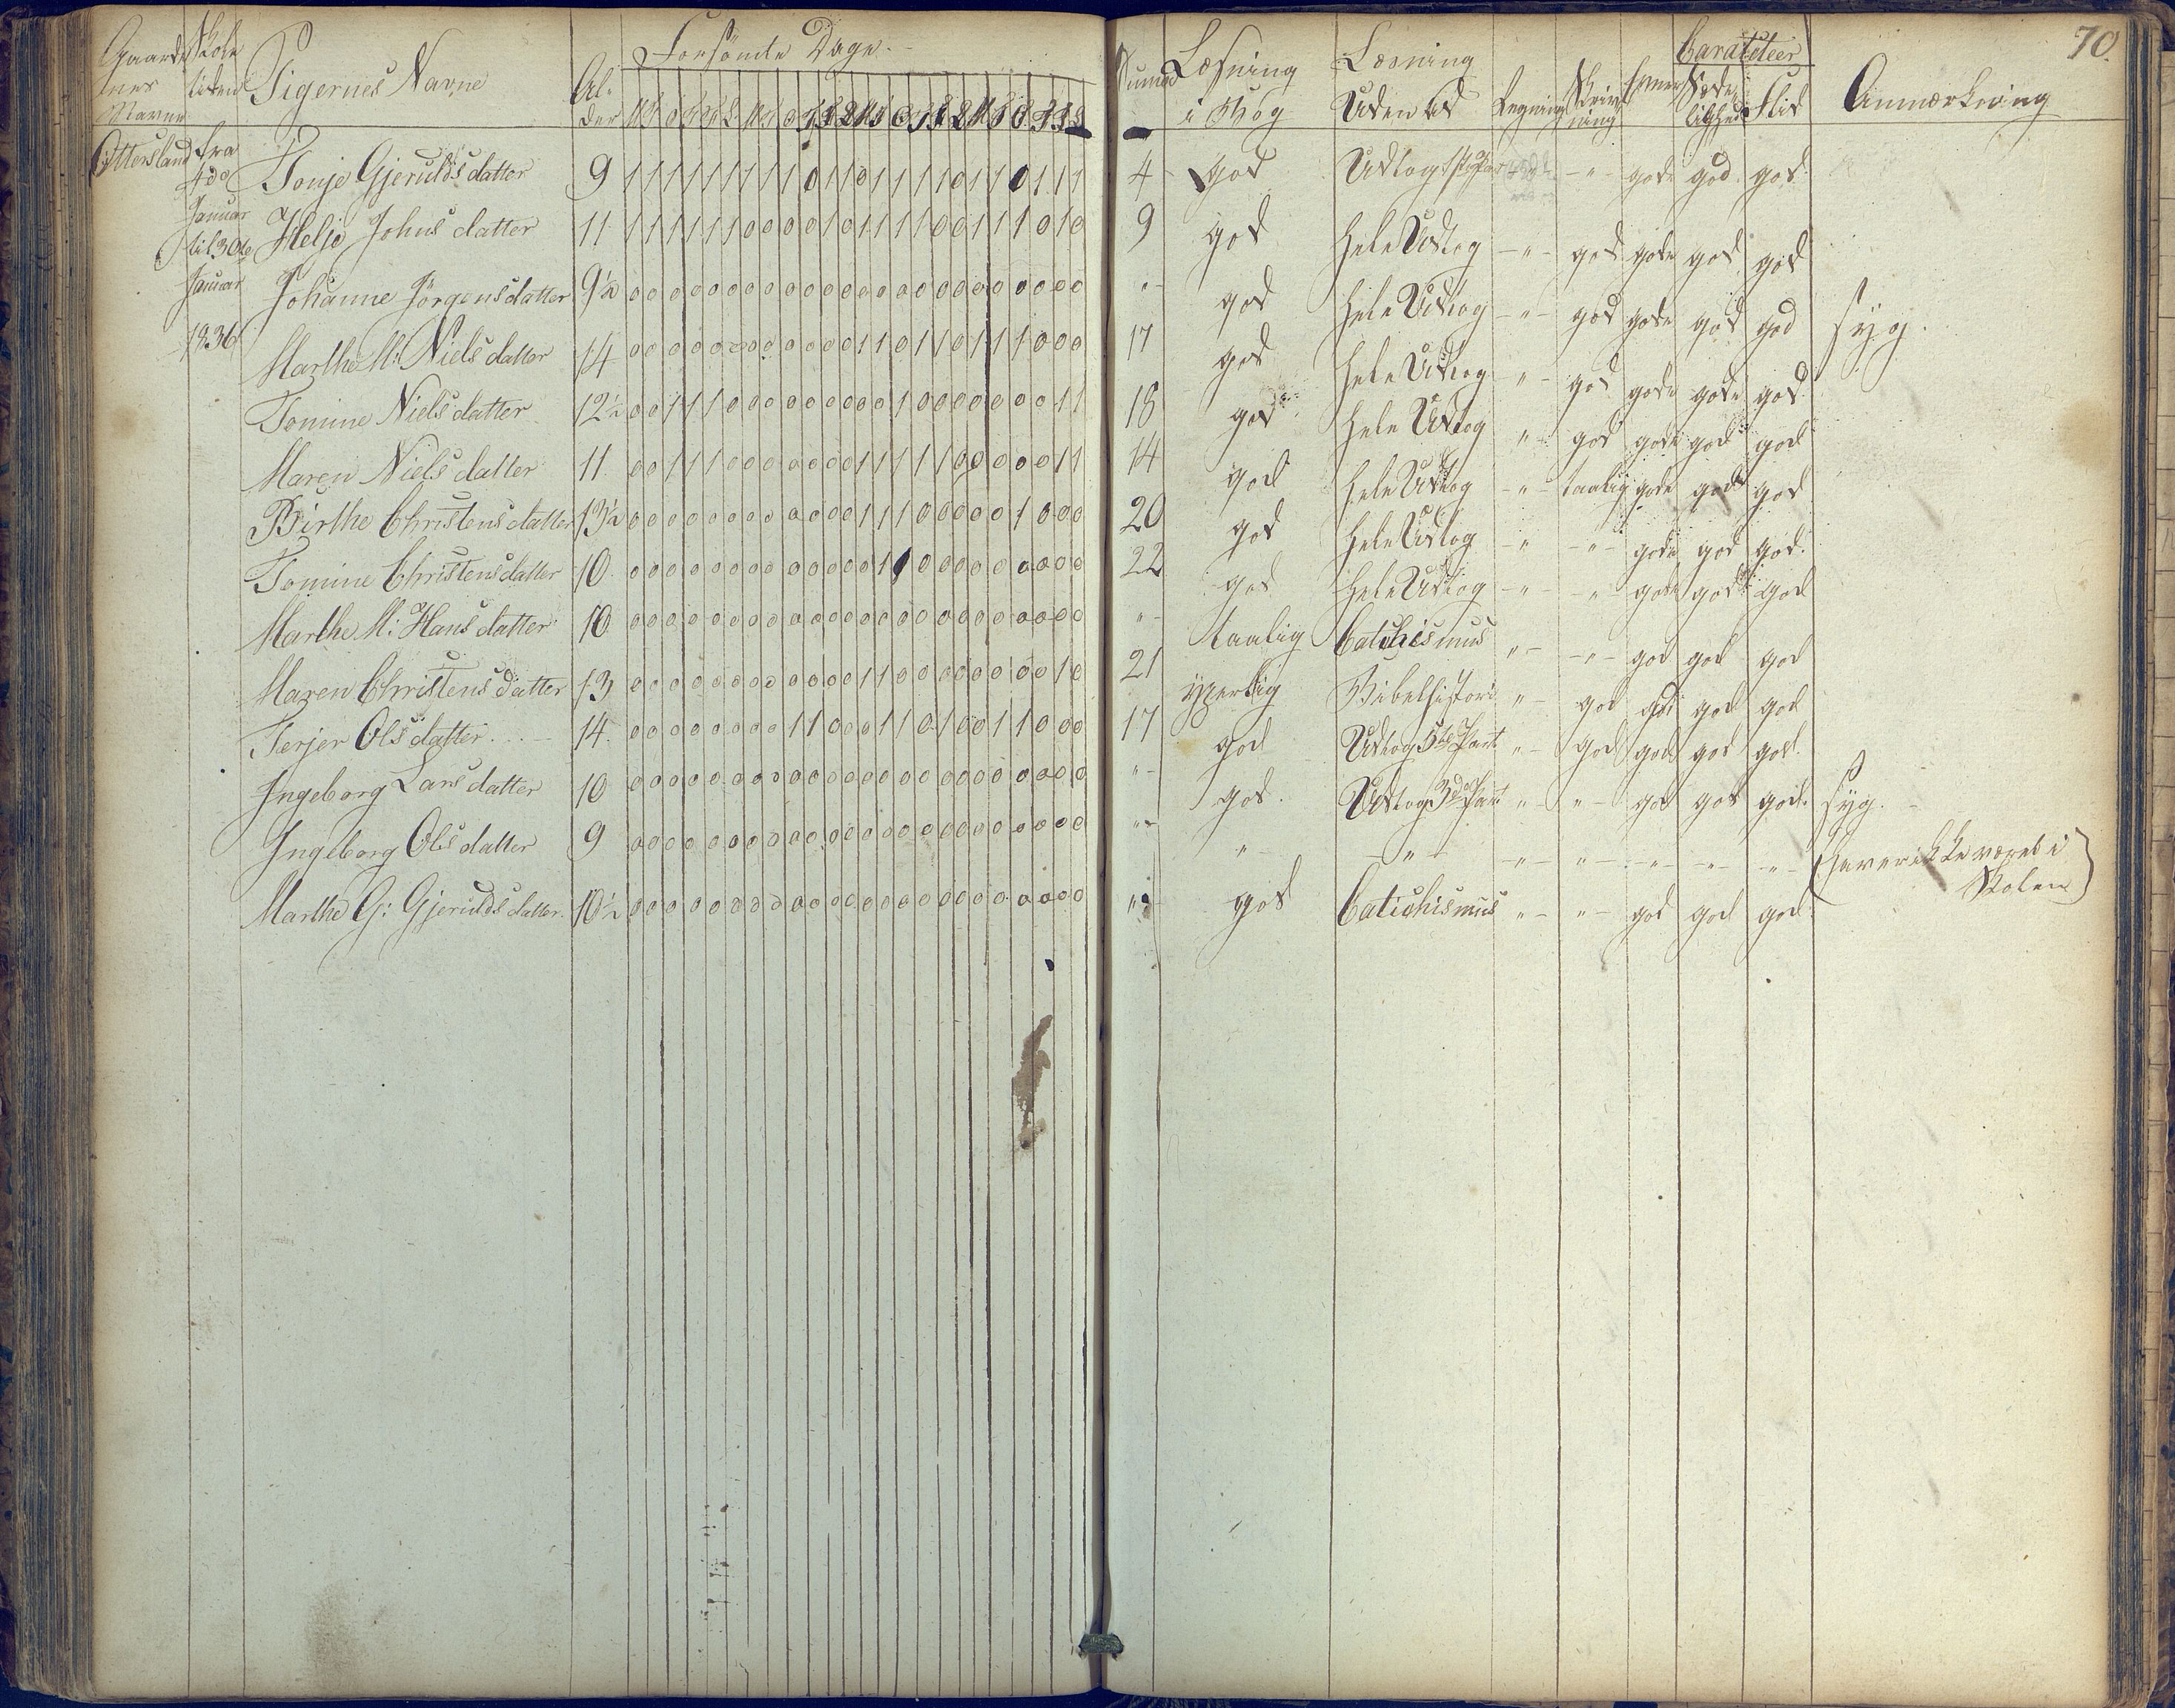 70.
Gaarde Skole Pigernes Navne Al- Forsømte Dage. Suma Læsning Læsning Regning Skriv Evner Caracteer Anmærkning
nes tiden der i Bog Udenad ning Sæde Flid
Navne lighed
Ottersland fra Tonje Gjerulds datter 9 1 1 1 1 1 1 1 1 1 0 1 1 0 1 1 1 1 0 1 1 0 1 1 1 4 god Udtog - " - gode god god
4de
Januar Helje Johns datter 11 1 1 1 1 1 1 0 0 0 0 1 0 1 1 1 1 0 0 1 1 1 0 1 0 9 god Hele Udtog - " - god gode god god
til 30te
Januar Johanne Jörgensdatter 9½ 0 0 0 0 0 0 0 0 0 0 0 0 0 0 0 0 0 0 0 0 0 0 0 0 " - god Hele Udtog - " - god gode god god syg.
1836
Marthe M: Niels datter 14 0 0 0 0 0 0 0 0 0 0 0 0 1 1 0 1 1 0 1 1 1 0 0 0 17 god Hele Udtog " - god gode gode god
Tomine Niels datter 12½ 0 0 1 1 1 0 0 0 0 0 0 0 0 0 1 0 0 0 0 0 0 0 1 1 18 god Hele Udtog " - god gode god god
Maren Niels datter 11 0 0 1 1 1 0 0 0 0 0 0 0 1 1 1 1 1 0 0 0 0 0 1 1 14 god Hele Udtog - " - taalig gode gode god
Birthe Christens datter 13½ 0 0 0 0 0 0 0 0 0 0 0 0 1 1 1 0 0 0 0 0 1 0 0 0 20 god Hele Udtog - " - " - gode god god.
Tomine Christensdatter 10 0 0 0 0 0 0 0 0 0 0 0 0 0 1 1 0 0 0 0 0 0 0 0 0 22 god Hele Udtog - " - " - gode gode god
Marthe M: Hans datter 10 0 0 0 0 0 0 0 0 0 0 0 0 0 0 0 0 0 0 0 0 0 0 0 0 " - taalig Catichismus " - - " - god god god
Maren Christens datter 13 0 0 0 0 0 0 0 0 0 0 0 0 1 1 0 0 0 0 0 0 0 0 1 0 21 yperlig Bibelhistori " - god god god god
Terjer Ols datter. 14 0 0 0 0 0 0 0 0 1 1 0 0 0 1 1 0 1 0 0 1 1 0 0 0 17 god Udtog 5te Part " - god god god god.
Ingeborg Lars datter 10 0 0 0 0 0 0 0 0 0 0 0 0 0 0 0 0 0 0 0 0 0 0 0 0 " - god. Udtog 3die Part " - " - god god gode syg.
Ingeborg Ols datter 9 0 0 0 0 0 0 0 0 0 0 0 0 0 0 0 0 0 0 0 0 0 0 0 0 " - " - - " - - " - " - - " - - " - - " - (haver ikke været i
Skolen)
Marthe G: Gjerulds datter. 10½ 0 0 0 0 0 0 0 0 0 0 0 0 0 0 0 0 0 0 0 0 0 0 0 0 " god Catichismus " - " - god god god